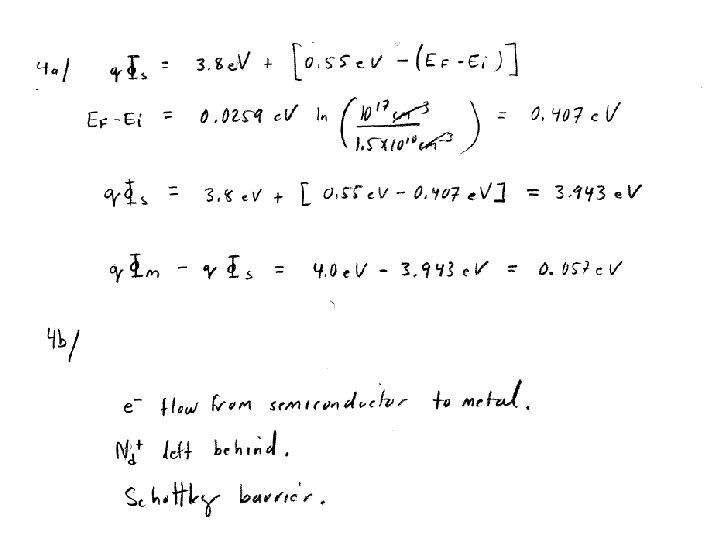 4a/ qΦs = 3.8 eV + [0.55 eV - (EF - Ei)]
EF - Ei = 0.0259 eV ln (10^17 cm^-3 / 1.5×10^10 cm^-3) = 0.407 eV
qΦs = 3.8 eV + [0.55 eV - 0.407 eV] = 3.943 eV
qΦm - qΦs = 4.0 eV - 3.943 eV = 0.057 eV
4b/
e⁻ flow from semiconductor to metal.
Nd⁺ left behind.
Schottky barrier.